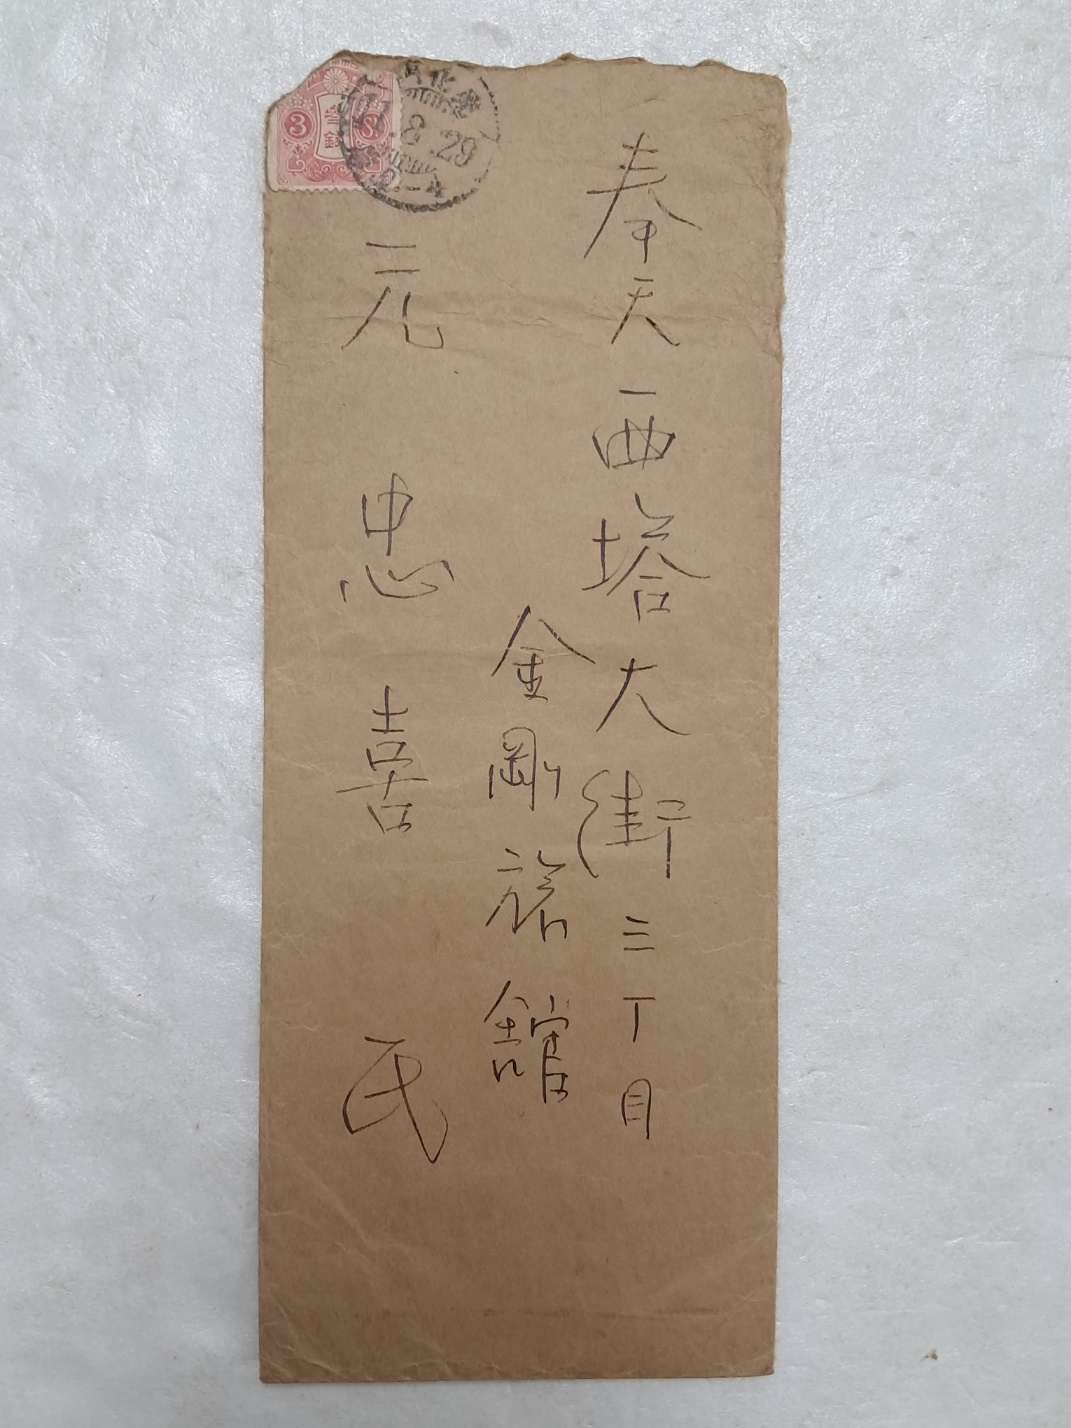 奉天西塔大街三丁目
金剛旅館
元忠喜氏
3 参 3
8.29